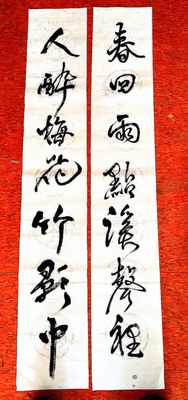 春回雨點溪聲裡
人醉梅花竹影中